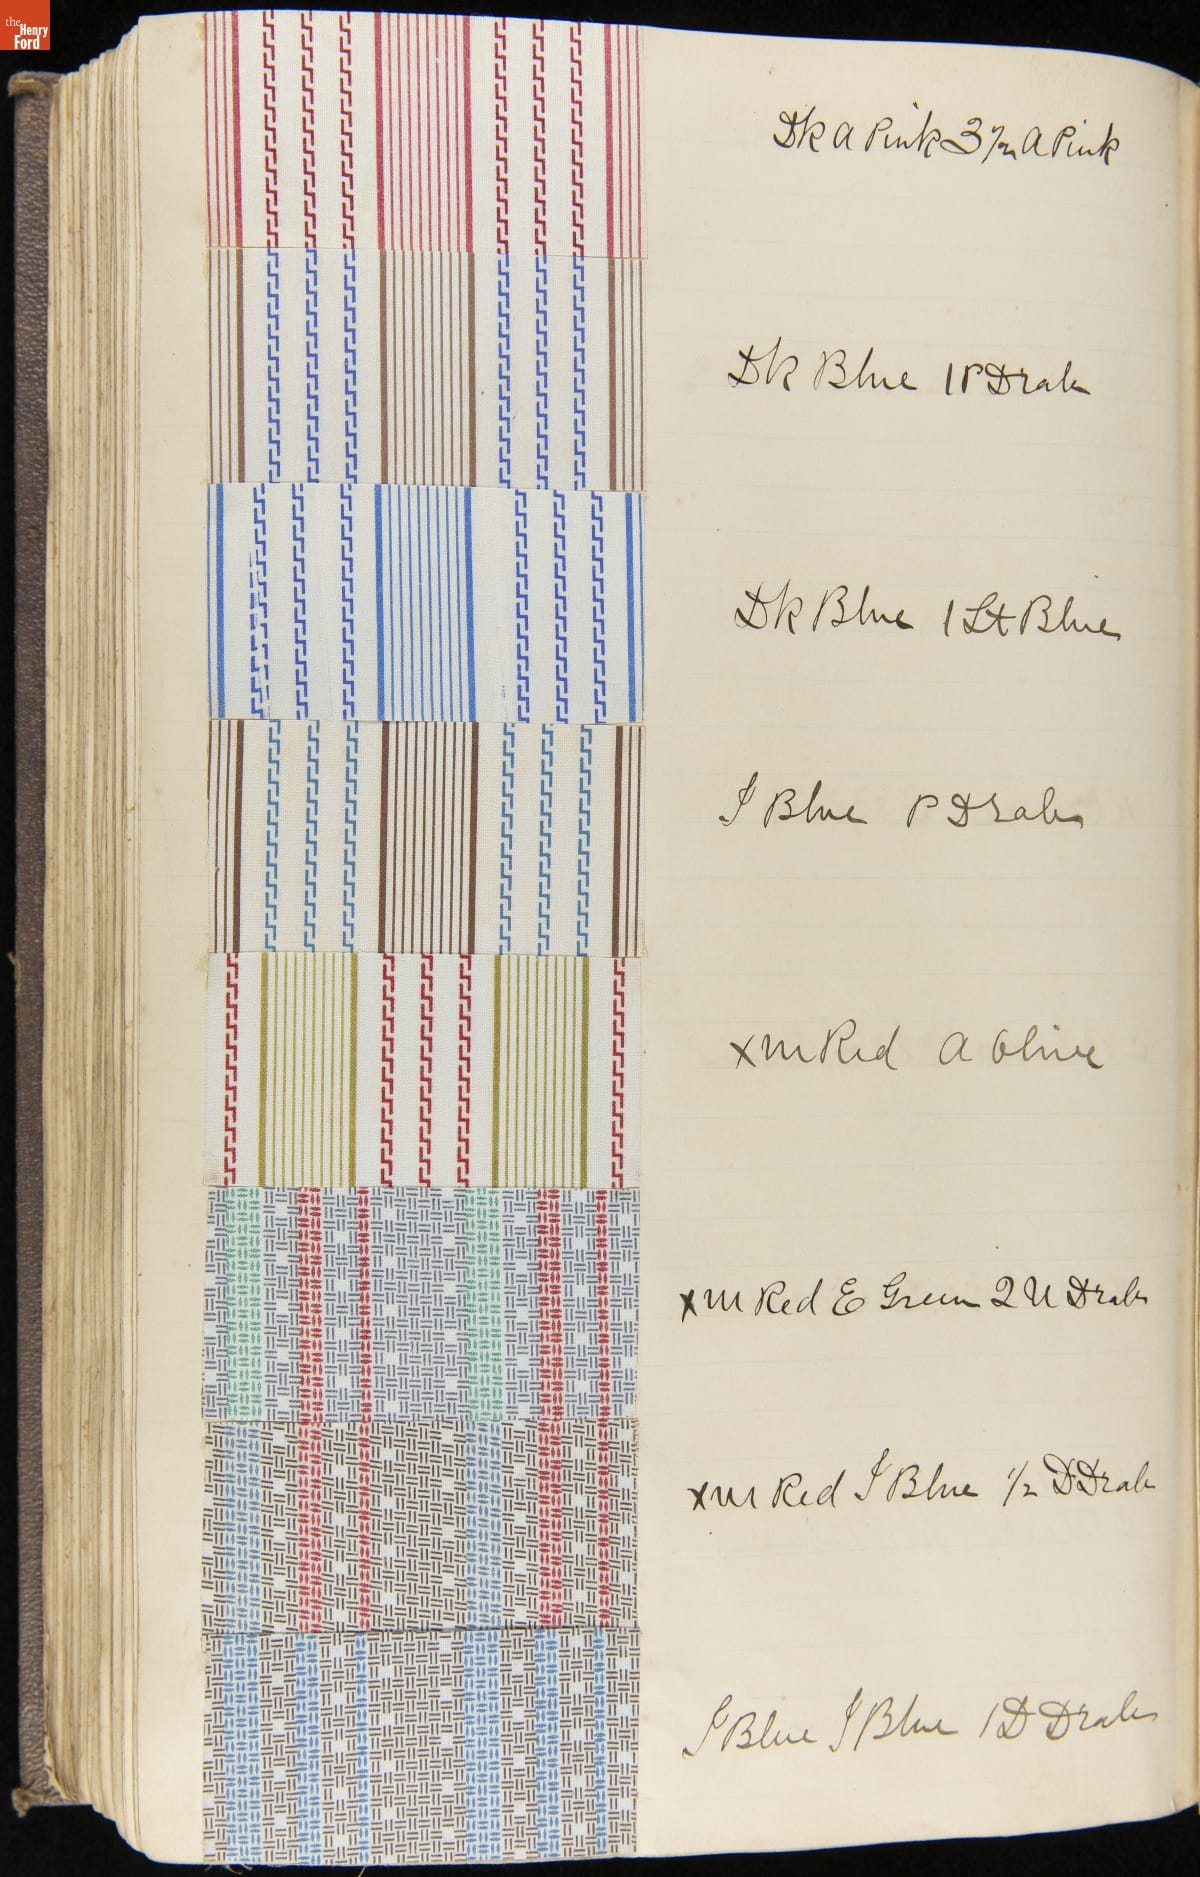 the
Henry
Ford
Dk A Pink 3 1/2 A Pink
Dk Blue 1 P Drab
Dk Blue 1 Lt Blue
I Blue P Drab
x m Red A Olive
x m Red E Green 2 U Drab
x m Red I Blue 1/2 D Drab
I Blue I Blue 1 D Drab